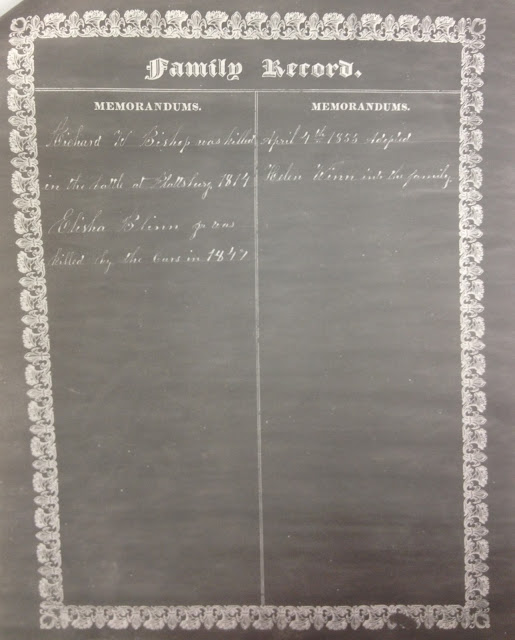 Family Record.
MEMORANDUMS.
Richard W Bishop was killed
in the battle at Plattsburg 1814
Elisha Blinn jr was
killed by the Cars in 1847
MEMORANDUMS.
April 4th 1855 Adopted
Helen Winn into the family